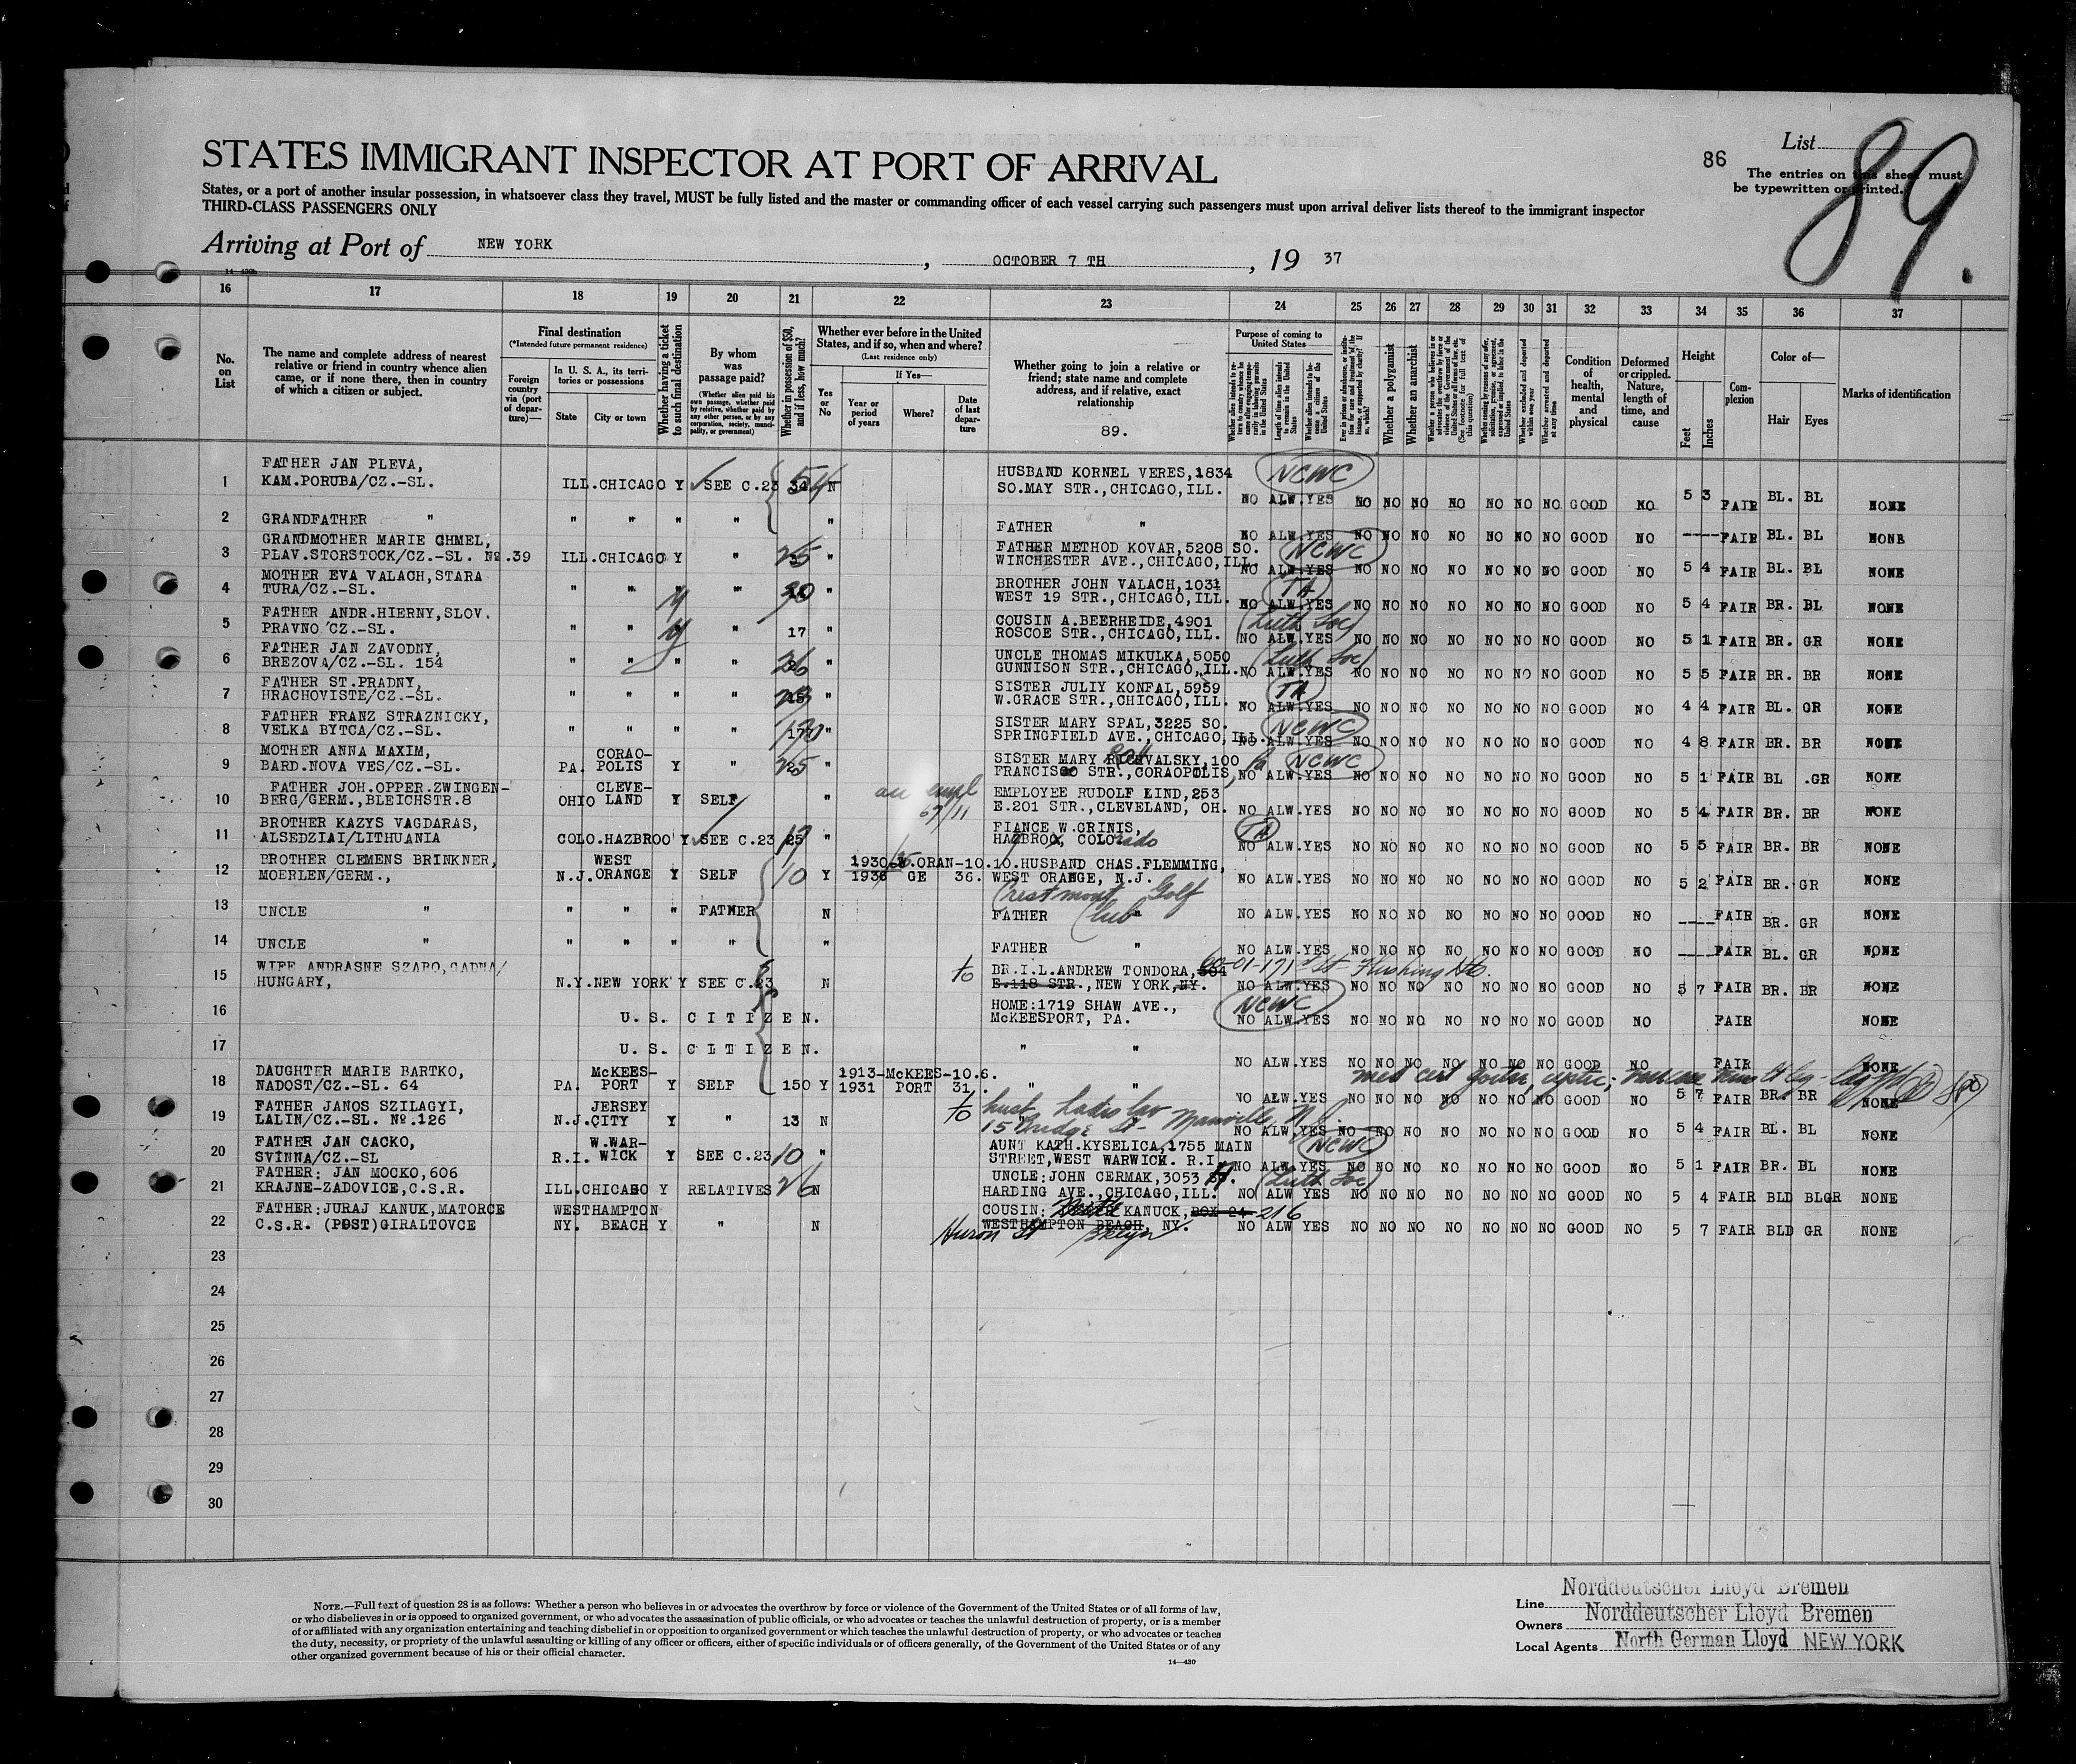 List
86
89.
The entries on this sheet must
be typewritten or printed.
STATES IMMIGRANT INSPECTOR AT PORT OF ARRIVAL
States, or a port of another insular possession, in whatsoever class they travel, MUST be fully listed and the master or commanding officer of each vessel carrying such passengers must upon arrival deliver lists thereof to the immigrant inspector
THIRD-CLASS PASSENGERS ONLY
Arriving at Port of NEW YORK, OCTOBER 7 TH, 19 37
14—430b
16 17 18 19 20 21 22 23 24 25 26 27 28 29 30 31 32 33 34 35 36 37
No. on List
The name and complete address of nearest relative or friend in country whence alien came, or if none there, then in country of which a citizen or subject.
Final destination
(*Intended future permanent residence)
Foreign country via (port of departure)—
In U. S. A., its territories or possessions
State
City or town
Whether having a ticket to such final destination
By whom was passage paid?
(Whether alien paid his own passage, whether paid by relative, whether paid by any other person, or by any corporation, society, municipality, or government)
Whether in possession of $50, and if less, how much?
Whether ever before in the United States, and if so, when and where?
(Last residence only)
Yes or No
If Yes—
Year or period of years
Where?
Date of last departure
Whether going to join a relative or friend; state name and complete address, and if relative, exact relationship
89.
Purpose of coming to United States
Whether a polygamist
Whether an anarchist
Condition of health, mental and physical
Deformed or crippled. Nature, length of time, and cause
Height
Feet
Inches
Complexion
Color of—
Hair
Eyes
Marks of identification
1 FATHER JAN PLEVA, HUSBAND KORNEL VERES,1834 NCWC
KAM.PORUBA/CZ.-SL. ILL.CHICAGO Y SEE C.23 54 N SO.MAY STR.,CHICAGO,ILL. NO ALW.YES NO NO NO NO NO NO NO GOOD NO 5 3 FAIR BL. BL NONE
2 GRANDFATHER " " " " " " FATHER " NO ALW.YES NO NO NO NO NO NO NO GOOD NO ---- FAIR BL. BL NONE
3 GRANDMOTHER MARIE CHMEL, FATHER METHOD KOVAR,5208 SO. NCWC
PLAV.STORSTOCK/CZ.-SL. No.39 ILL.CHICAGO Y " 25 " WINCHESTER AVE.,CHICAGO,ILL. NO ALW.YES NO NO NO NO NO NO NO GOOD NO 5 4 FAIR BL. BL NONE
4 MOTHER EVA VALACH,STARA BROTHER JOHN VALACH,1031 TA
TURA/CZ.-SL. " " y " 30 " WEST 19 STR.,CHICAGO,ILL. NO ALW.YES NO NO NO NO NO NO NO GOOD NO 5 4 FAIR BR. BL NONE
5 FATHER ANDR.HIERNY,SLOV. COUSIN A.BEERHEIDE,4901 Luth Soc
PRAVNO/CZ.-SL. " " y " 17 " ROSCOE STR.,CHICAGO,ILL. NO ALW.YES NO NO NO NO NO NO NO GOOD NO 5 1 FAIR BR. GR NONE
6 FATHER JAN ZAVODNY, UNCLE THOMAS MIKULKA,5050 Luth Soc
BREZOVA/CZ.-SL. 154 " " " " 26 " GUNNISON STR.,CHICAGO,ILL. NO ALW.YES NO NO NO NO NO NO NO GOOD NO 5 5 FAIR BR. BR NONE
7 FATHER ST.PRADNY, SISTER JULIY KONFAL,5959 TA
HRACHOVISTE/CZ.-SL. " " " " " W.GRACE STR.,CHICAGO,ILL. NO ALW.YES NO NO NO NO NO NO NO GOOD NO 4 4 FAIR BL. GR NONE
8 FATHER FRANZ STRAZNICKY, SISTER MARY SPAL,3225 SO. NCWC
VELKA BYTCA/CZ.-SL. " " " " " SPRINGFIELD AVE.,CHICAGO,ILL. NO ALW.YES NO NO NO NO NO NO NO GOOD NO 4 8 FAIR BR. BR NONE
9 MOTHER ANNA MAXIM, CORAO- SISTER MARY VALSKY,100 NCWC
BARD.NOVA VES/CZ.-SL. PA. POLIS Y " 25 " FRANCISCO STR.,CORAOPOLIS, NO ALW.YES NO NO NO NO NO NO NO GOOD NO 5 1 FAIR BL .GR NONE
10 FATHER JOH.OPPER.ZWINGEN- CLEVE- EMPLOYEE RUDOLF LIND,253
BERG/GERM.,BLEICHSTR.8 OHIO LAND Y SELF " E.201 STR.,CLEVELAND, OH. NO ALW.YES NO NO NO NO NO NO NO GOOD NO 5 4 FAIR BR. BR NONE
11 BROTHER KAZYS VAGDARAS, FIANCE W.GRINIS, TA
ALSEDZIAI/LITHUANIA COLO.HAZBROO Y SEE C.23 " COLOrado NO ALW.YES NO NO NO NO NO NO NO GOOD NO 5 5 FAIR BR. BR NONE
12 BROTHER CLEMENS BRINKNER, WEST 1930-W.ORAN-10.10. HUSBAND CHAS.FLEMMING,
MOERLEN/GERM., N.J.ORANGE Y SELF 10 Y 1936 GE 36. WEST ORANGE, N.J. NO ALW.YES NO NO NO NO NO NO NO GOOD NO 5 2 FAIR BR. GR NONE
Crestmont Golf Club
13 UNCLE " " " " FATHER N FATHER " NO ALW.YES NO NO NO NO NO NO NO GOOD NO ---- FAIR BR. GR NONE
14 UNCLE " " " " " " FATHER " NO ALW.YES NO NO NO NO NO NO NO GOOD NO ---- FAIR BL. GR NONE
15 WIFE ANDRASNE SZABO, to BR.I.L.ANDREW TONDORA, 60-01-171st St Flushing
HUNGARY, N.Y.NEW YORK Y SEE C.23 N E.118 STR.,NEW YORK,NY. NO ALW.YES NO NO NO NO NO NO NO GOOD NO 5 7 FAIR BR. BR NONE
16 HOME:1719 SHAW AVE., NCWC
U. S. C I T I Z E N. McKEESPORT, PA. NO ALW.YES NO NO NO NO NO NO NO GOOD NO FAIR NONE
17 U. S. C I T I Z E N. " " NO ALW.YES NO NO NO NO NO NO NO GOOD NO FAIR NONE
18 DAUGHTER MARIE BARTKO, McKEES- 1913-McKEES-10.6. med cert goitre
NADOST/CZ.-SL. 64 PA. PORT Y SELF 150 Y 1931 PORT 31. " " NO ALW.YES NO NO NO NO NO NO NO GOOD NO 5 7 FAIR BR. BR NONE
19 FATHER JANOS SZILAGYI, JERSEY to husb Ladislav
LALIN/CZ.-SL. No.126 N.J.CITY Y " 13 N 15 Bridge St- Manville, N.J. NO ALW.YES NO NO NO NO NO NO NO GOOD NO 5 4 FAIR BL. BL NONE
20 FATHER JAN CACKO, W.WAR- AUNT KATH.KYSELICA,1755 MAIN NCWC
SVINNA/CZ.-SL R.I. WICK Y SEE C.23 10 " STREET,WEST WARWICK. R.I. NO ALW.YES NO NO NO NO NO NO NO GOOD NO 5 1 FAIR BR. BL NONE
21 FATHER: JAN MOCKO,606 UNCLE:JOHN CERMAK,3053 Luth Soc
KRAJNE-ZADOVICE,C.S.R. ILL.CHICAGO Y RELATIVES 26 N HARDING AVE.,CHICAGO,ILL. NO ALW YES NO NO NO NO NO NO NO GOOD NO 5 4 FAIR BLD BLGR NONE
22 FATHER:JURAJ KANUK,MATORCE WESTHAMPTON COUSIN: KANUCK, BOX 24 216
C.S.R. (POST)GIRALTOVCE NY. BEACH Y " N WESTHAMPTON BEACH, NY. NO ALW YES NO NO NO NO NO NO NO GOOD NO 5 7 FAIR BLD GR NONE
Huron St Bklyn
23
24
25
26
27
28
29
30
NOTE.—Full text of question 28 is as follows: Whether a person who believes in or advocates the overthrow by force or violence of the Government of the United States or of all forms of law,
or who disbelieves in or is opposed to organized government, or who advocates the assassination of public officials, or who advocates or teaches the unlawful destruction of property, or is a member
of or affiliated with any organization entertaining and teaching disbelief in or opposition to organized government or which teaches the unlawful destruction of property, or who advocates or teaches
the duty, necessity, or propriety of the unlawful assaulting or killing of any officer or officers, either of specific individuals or of officers generally, of the Government of the United States or of any
other organized government because of his or their official character.
14—430
Line Norddeutscher Lloyd Bremen
Owners Norddeutscher Lloyd Bremen
Local Agents North German Lloyd NEW YORK